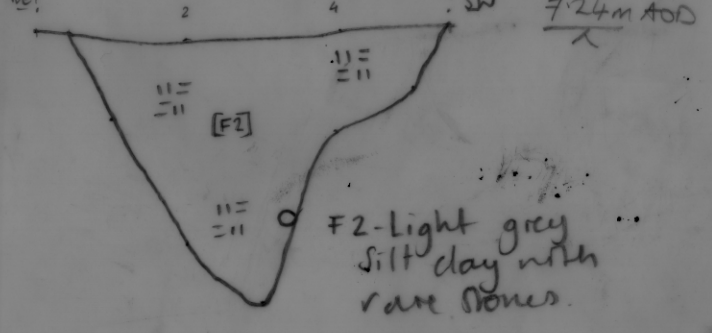 2 4 SW 7.24m AOD
[F2]
F2-Light grey
Silt clay with
rare stones.